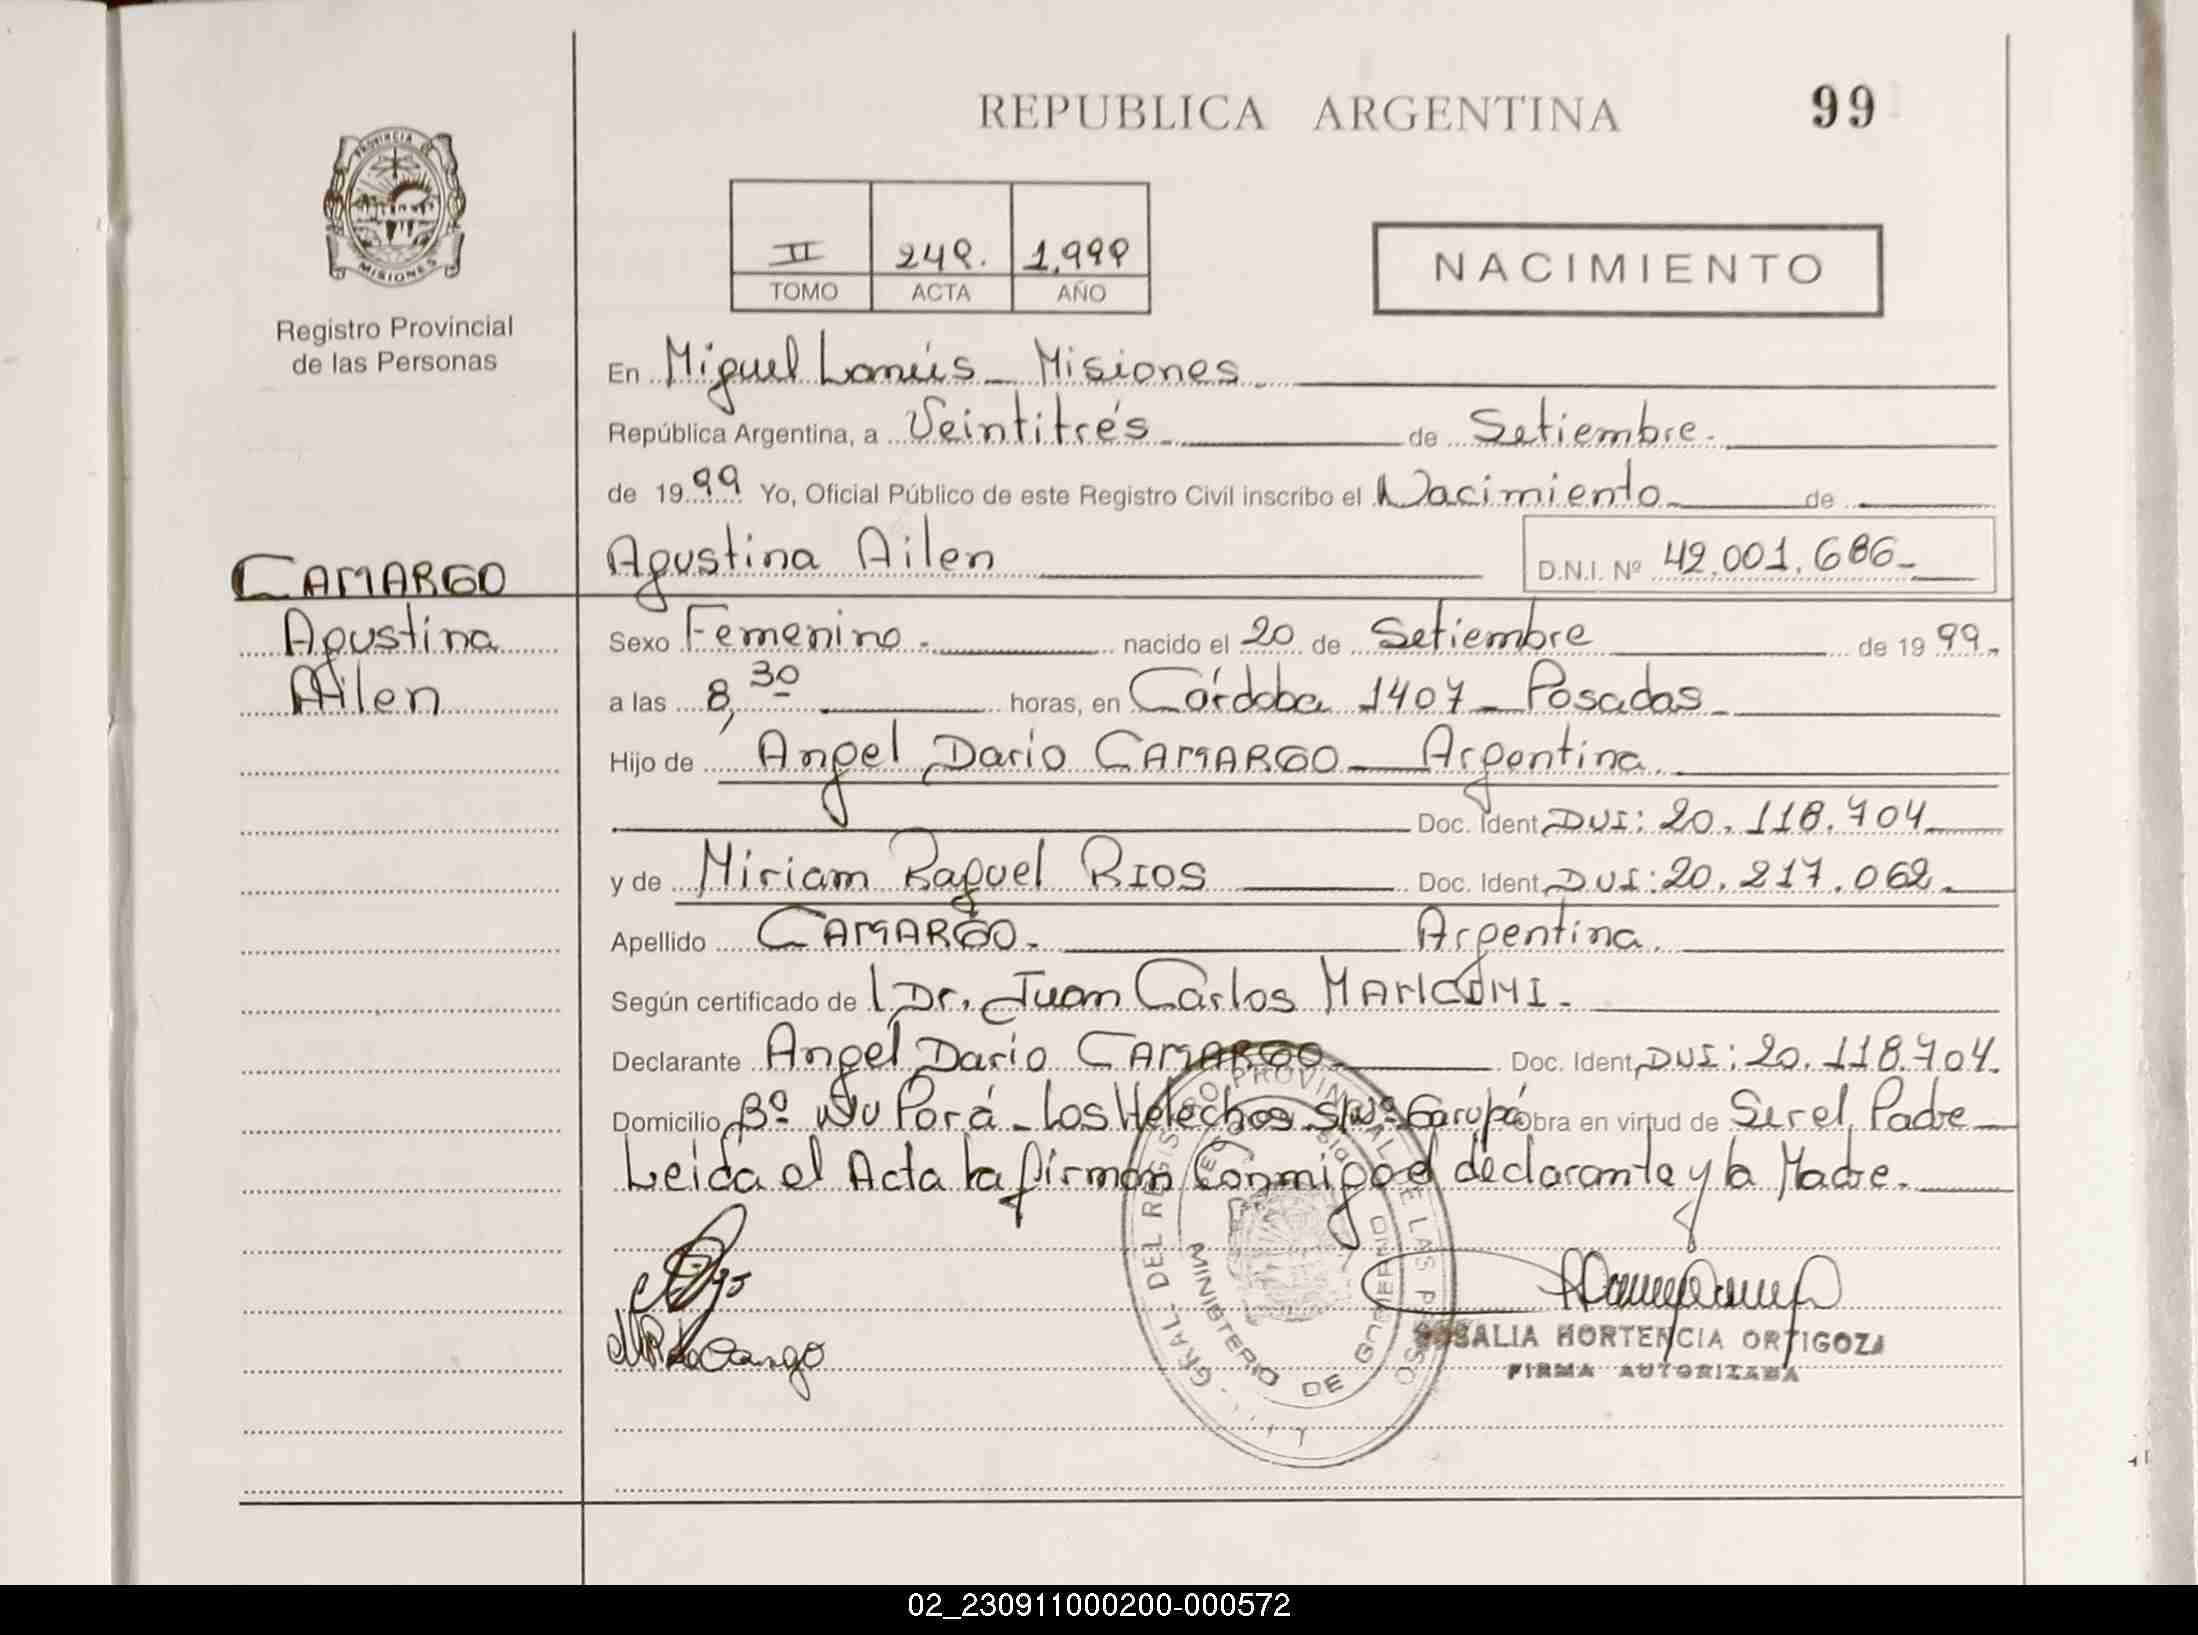 REPUBLICA ARGENTINA 99
PROVINCIA DE
MISIONES
Registro Provincial
de las Personas
II 249. 1.999
TOMO ACTA AÑO
NACIMIENTO
En Miguel Lanús - Misiones.
República Argentina, a Veintitrés de Setiembre.
de 1999 Yo, Oficial Público de este Registro Civil inscribo el Nacimiento de
Agustina Ailen D.N.I. Nº 42.001.686-
CAMARGO
Agustina
Ailen
Sexo Femenino. nacido el 20 de Setiembre de 1999.
a las 8,30 horas, en Córdoba 1407 - Posadas
Hijo de Angel Dario CAMARGO - Argentina.
Doc. Ident. DNI: 20.118.704
y de Miriam Raquel RIOS Doc. Ident. DNI: 20.217.062.
Apellido CAMARGO. Argentina.
Según certificado de Dr. Juan Carlos
Declarante Angel Dario CAMARGO Doc. Ident. DNI: 20.118.704.
Domicilio Bº Ñu Porá - Los Helechos S/Nº Garupá Obra en virtud de Ser el Padre
Leida el Acta la firman Conmigo el declarante y la Madre.
GRAL. DEL REGISTRO PROVINCIAL DE LAS PERSO
MINISTERIO DE GOBIERNO
ROSALIA HORTENCIA ORTIGOZA
FIRMA AUTORIZADA
02_230911000200-000572